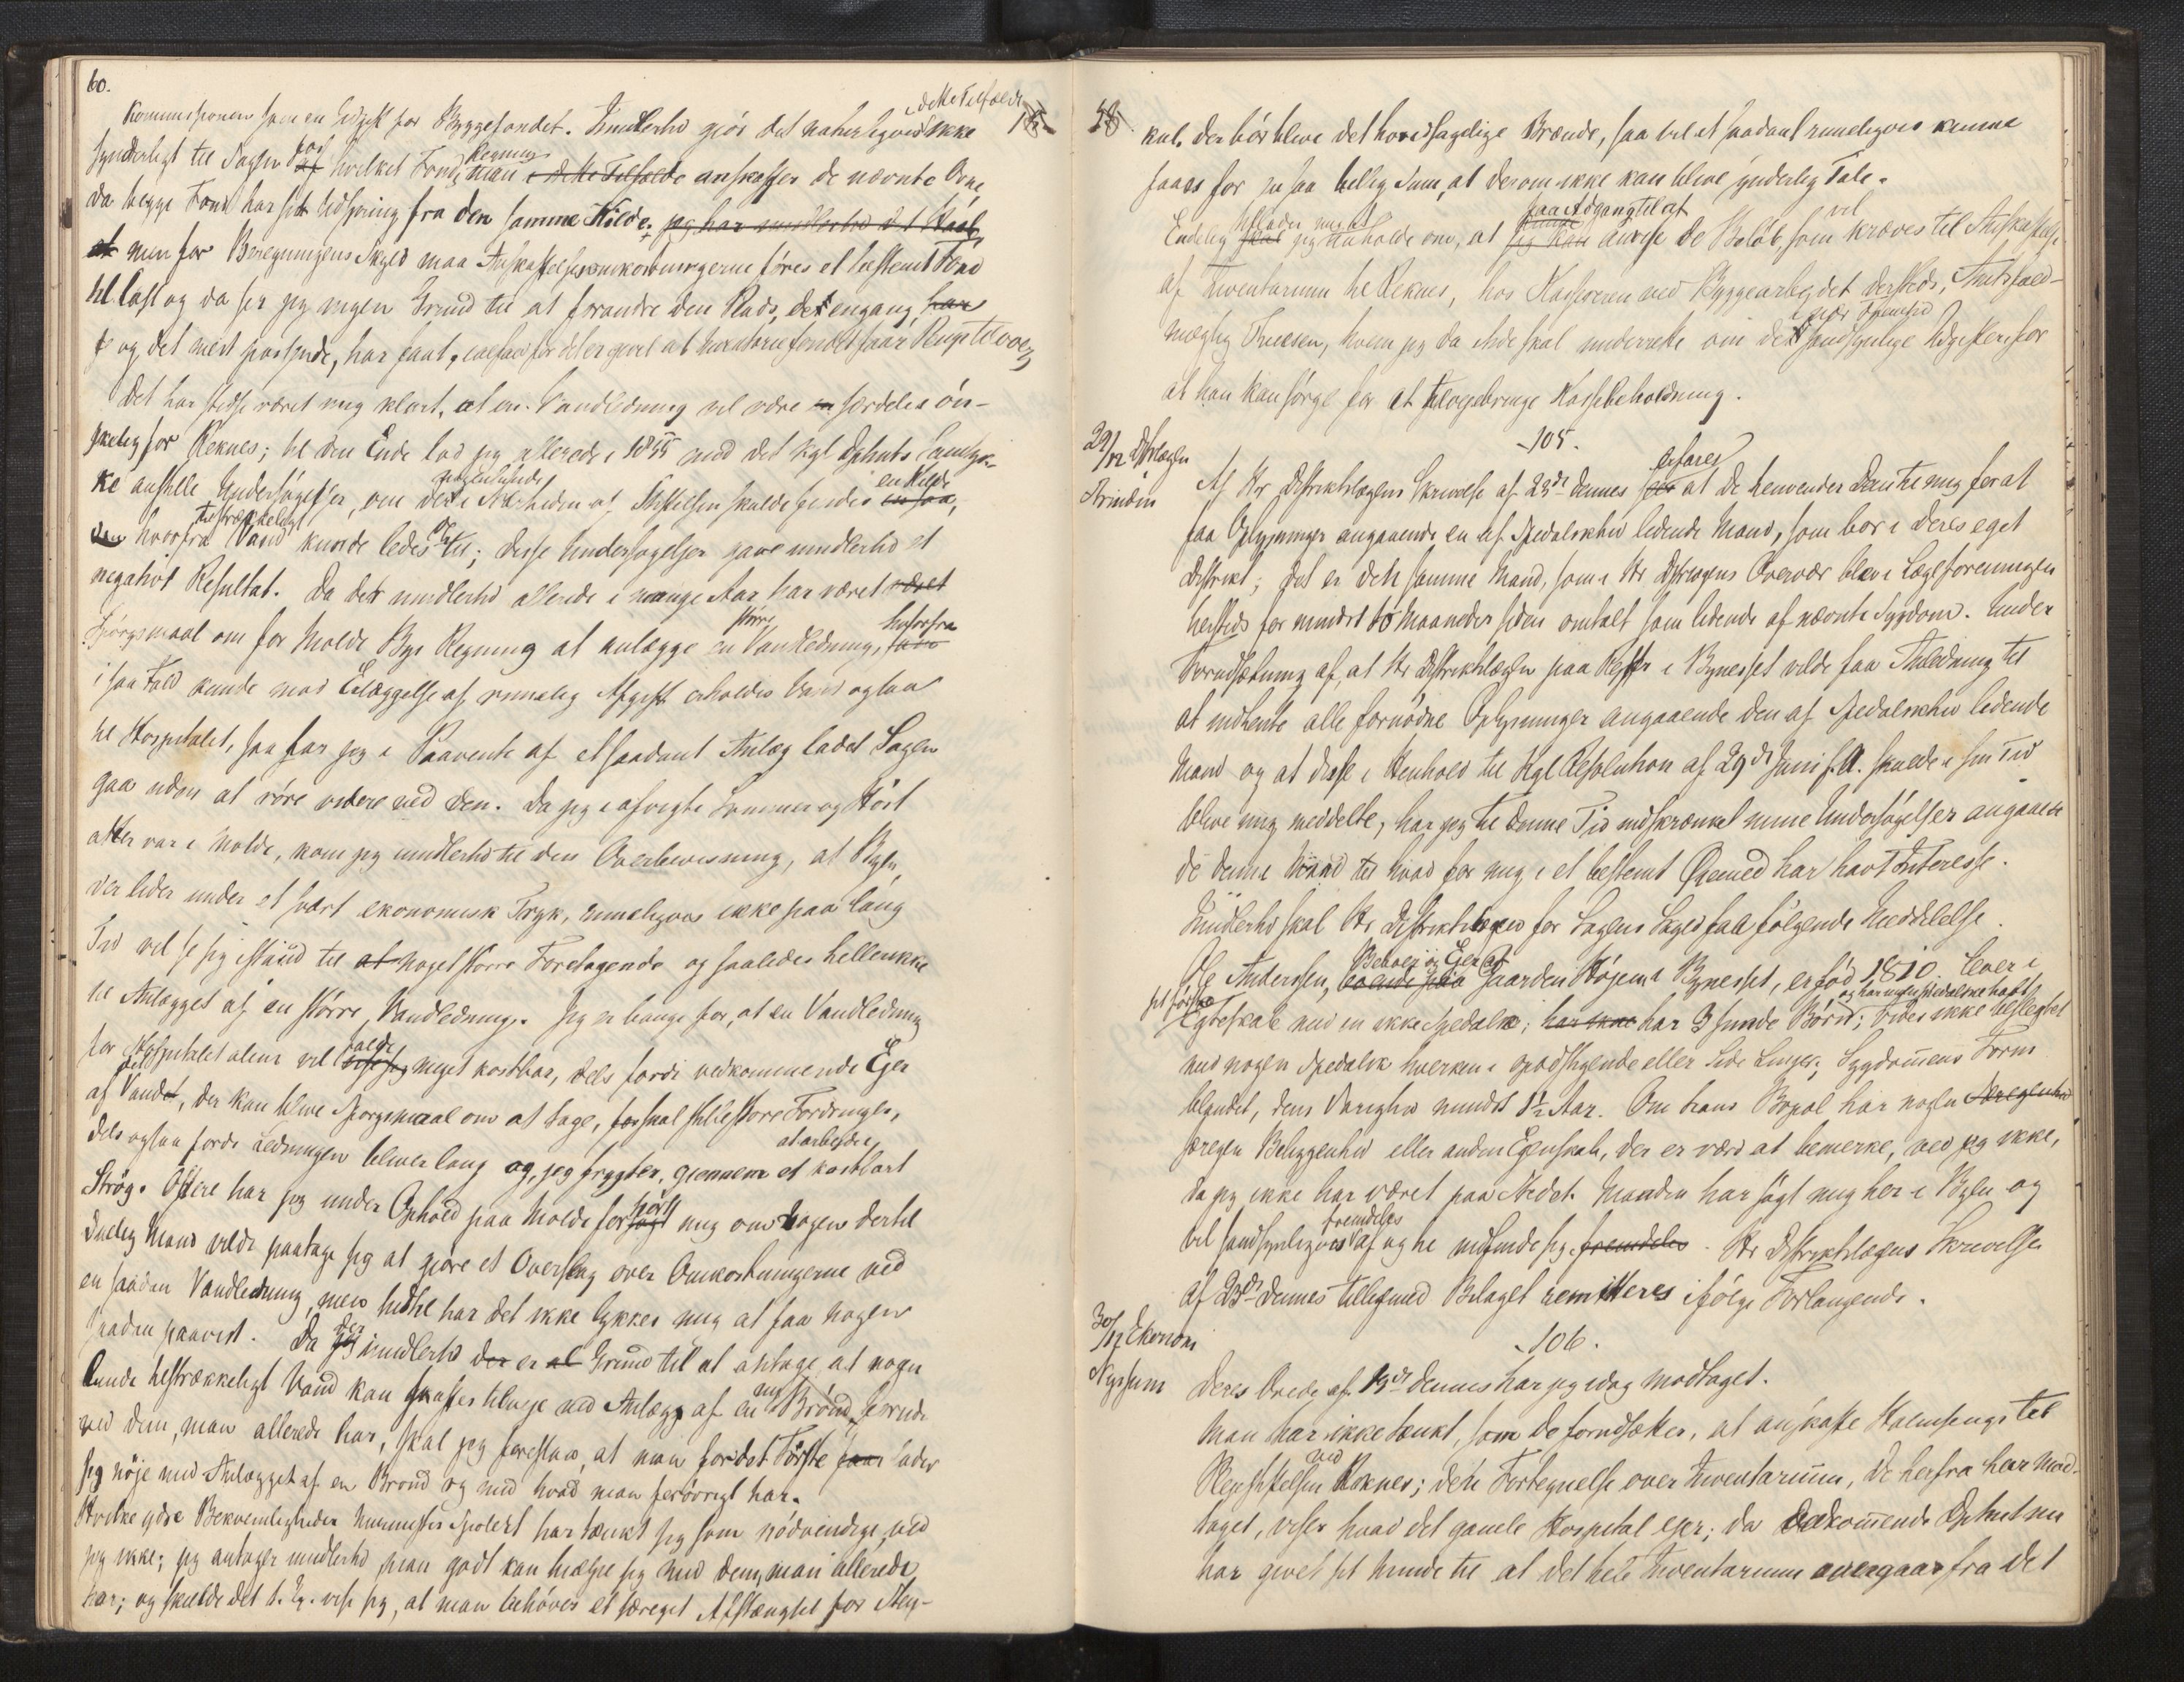 60.
Kommissionen som en Udgift for Byggefondet. Imidlertid gjör det naturligvis i dette Tilfælde ikke
synderligt til Sagen paa af hvilket Fonds Regning man i dette Tilfælde anskaffer de nævnte Ovne
da begge Fond har sit Udspring fra den samme Kilde; jeg har imidlertid det Haab,
at men for Beregningens Skyld maa Anskaffelsesomkostningerne föres et bestemt Fond
til Last og da ser jeg ingen Grund til at forandre den Plads, det engang har
og det mest passende, har faaet, ialfald för det er givet at Inventariefondet faar Penge tilovers
Det har stedse været mig klart, at en Vandledning vil være en særdeles ön-
skelig for Reknes; til den Ende lod jeg allerede i 1855 med det Kgl Dephnts Samtyk-
ke anstille Undersögelser, om der i Nærheden af Stiftelsen skulde findes en Kilde en saa,
den hvorfra tilstrækkeligt Vand kunde ledes til; disse Undersögelser gave imidlertid et
negativt Resultat. Da det imidlertid allerede i mange Aar har været været
Spörgsmaal om for Molde Byes Regning at anlægge en större Vandledning, hvorfra som
i saa Fald kunde mod Erlæggelse af rimelig Afgift erholdes Vand ogsaa
til Hospitalet, saa har jeg i Paavente af et saadant Anlæg ladet Sagen
gaa uden at röre videre ved den. Da jeg i afvigte Sommer og Höst
atter var i Molde, kom jeg imidlertid til den Overbevisning, at Byen,
der lider under et svært ekonomisk Tryk, rimeligvis ikke paa lang
Tid vil se sig istand til at noget större Foretagende og saaledes hellerikke
til Anlægget af en större Vandledning. Jeg er bange for, at en Vandledning
for Hospitalet alene vil falde vise sig meget kostbar, dels fordi vedkommende Eger
af det Vandet, der kan blive Spörgsmaal om at tage, skal stille store Fordringer,
dels ogsaa fordi Ledningen bliver lang og, jeg frygter, gjennem et kostbart at arbeide
Strög. Oftere har jeg under Ophold paa Molde forhört mig om Nogen dertil
duelig Mand vilde paatage sig at gjöre et Overslag over Omkostningerne ved
en saadan Vandledning, men hidtil har det ikke lykkes mig at faa nogen
saadan paavist. Da der jeg imidlertid der er al Grund til at antage, at nogen
lunde tilstrækkeligt Vand kan skaffes tilveje ved Anlægg af en ny Brönd, foruden
ved dem, man allerede har, skal jeg foreslaa, at man for det Förste faar lader
sig nöje med Anlægget af en Brönd og med hvad man forövrigt har.
Hvilke ydre Bekvemligheder Murmester Spolert har tænkt sig som nödvendige, ved
jeg ikke; jeg antager imidlertid man godt kan hjælpe sig med dem, man allerede
har; og skulde det t. Ex. vise sig, at man behöver et særeget Afstængsel for Sten-
kul, der bör blive det hovedsagelige Brænde, saa vil et saadant rimeligvis kunne
faaes for en saa billig Sum, at derom ikke kan blive synderlig Tale.
Endelig tillader mig at skal jeg anholde om, at faa Adgang til at kunne jeg kan anvise de Belöb, som vil kræves til Anskaffelse
af Inventarium til Reknes, hos Kassereren ved Byggearbejdet dersteds, Amtsfuld-
mægtig Thuesen, hvem jeg da altid skal underrette om de sandsynlige Udgifter i nær Fremtid for
at han kan sörge for at tilvejebringe Kassebeholdning.
- 105.
29/12 Distrlægen
Arindin
Af Hr Distriktslægens Skrivelse af 23de dennes ser erfarer at De henvender Dem til mig for at
faa Oplysninger angaaende en af Spedalskhed lidende Mand, som bor i Deres eget
Distrikt; det er den samme Mand, som i Hr Distrlægens Overvær blev i Lægeforeningen
hersteds for mindst to Maaneder siden omtalt som lidende af nævnte Sygdom. Under
Forudsætning af, at Hr Distriktslægen paa Rejser i Bynesset vilde faa Anledning til
at indhente alle fornödne Oplysninger angaaende den af Spedalskhed lidende
Mand og at disse i Henhold til Kgl Resolution af 29de Juni f. A. skulde i sin Tid
blive mig meddelte, har jeg til denne Tid indskrænket mine Undersögelser angaaen-
de denne Mand til hvad for mig i et bestemt Öiemed har havt Interesse.
Imidlertid skal Hr Distriktslægen for Sagens Skyld faa fölgende Meddelelse.
Ole Andersen, Beboer og Eier af boende paa Gaarden Höjem i Bynesset, er föd 1810. Lever i
sit förste Egteskab med en ikke spedalsk; har ikke har 3 sunde Börn; og har ingen spedalske havt vides ikke beslegtet
med nogen Spedalsk hverken i opadstigende eller Side Linjer; Sygdommens Form
blandet, dens Varighed mindst 1½ Aar. Om hans Bopæl har nogen
særegen Beliggenhed eller anden Egenskab, der er værd at bemerke, ved jeg ikke,
da jeg ikke har været paa Stedet. Manden har sögt mig her i Byen og
vil sandsynligvis fremdeles af og til indfinde sig fremdeles. Hr Distriktslægens Skrivelse
af 23de dennes tilligemed Bilaget remitteres ifölge Forlangende.
30/12 Ekonom
Nyssum
- 106.
Deres Brede af 19de dennes har jeg idag modtaget.
Man har ikke tænkt, som De forudsætter, at anskaffe Halmsenge til
Plejestiftelsen ved Reknes; den Fortegnelse over Inventarium, De herfra har mod-
taget, viser hvad det gamle Hospital ejer; da Vedkommende Dephnt nu
har givet sit Minde til at det hele Inventarium overgaar fra det